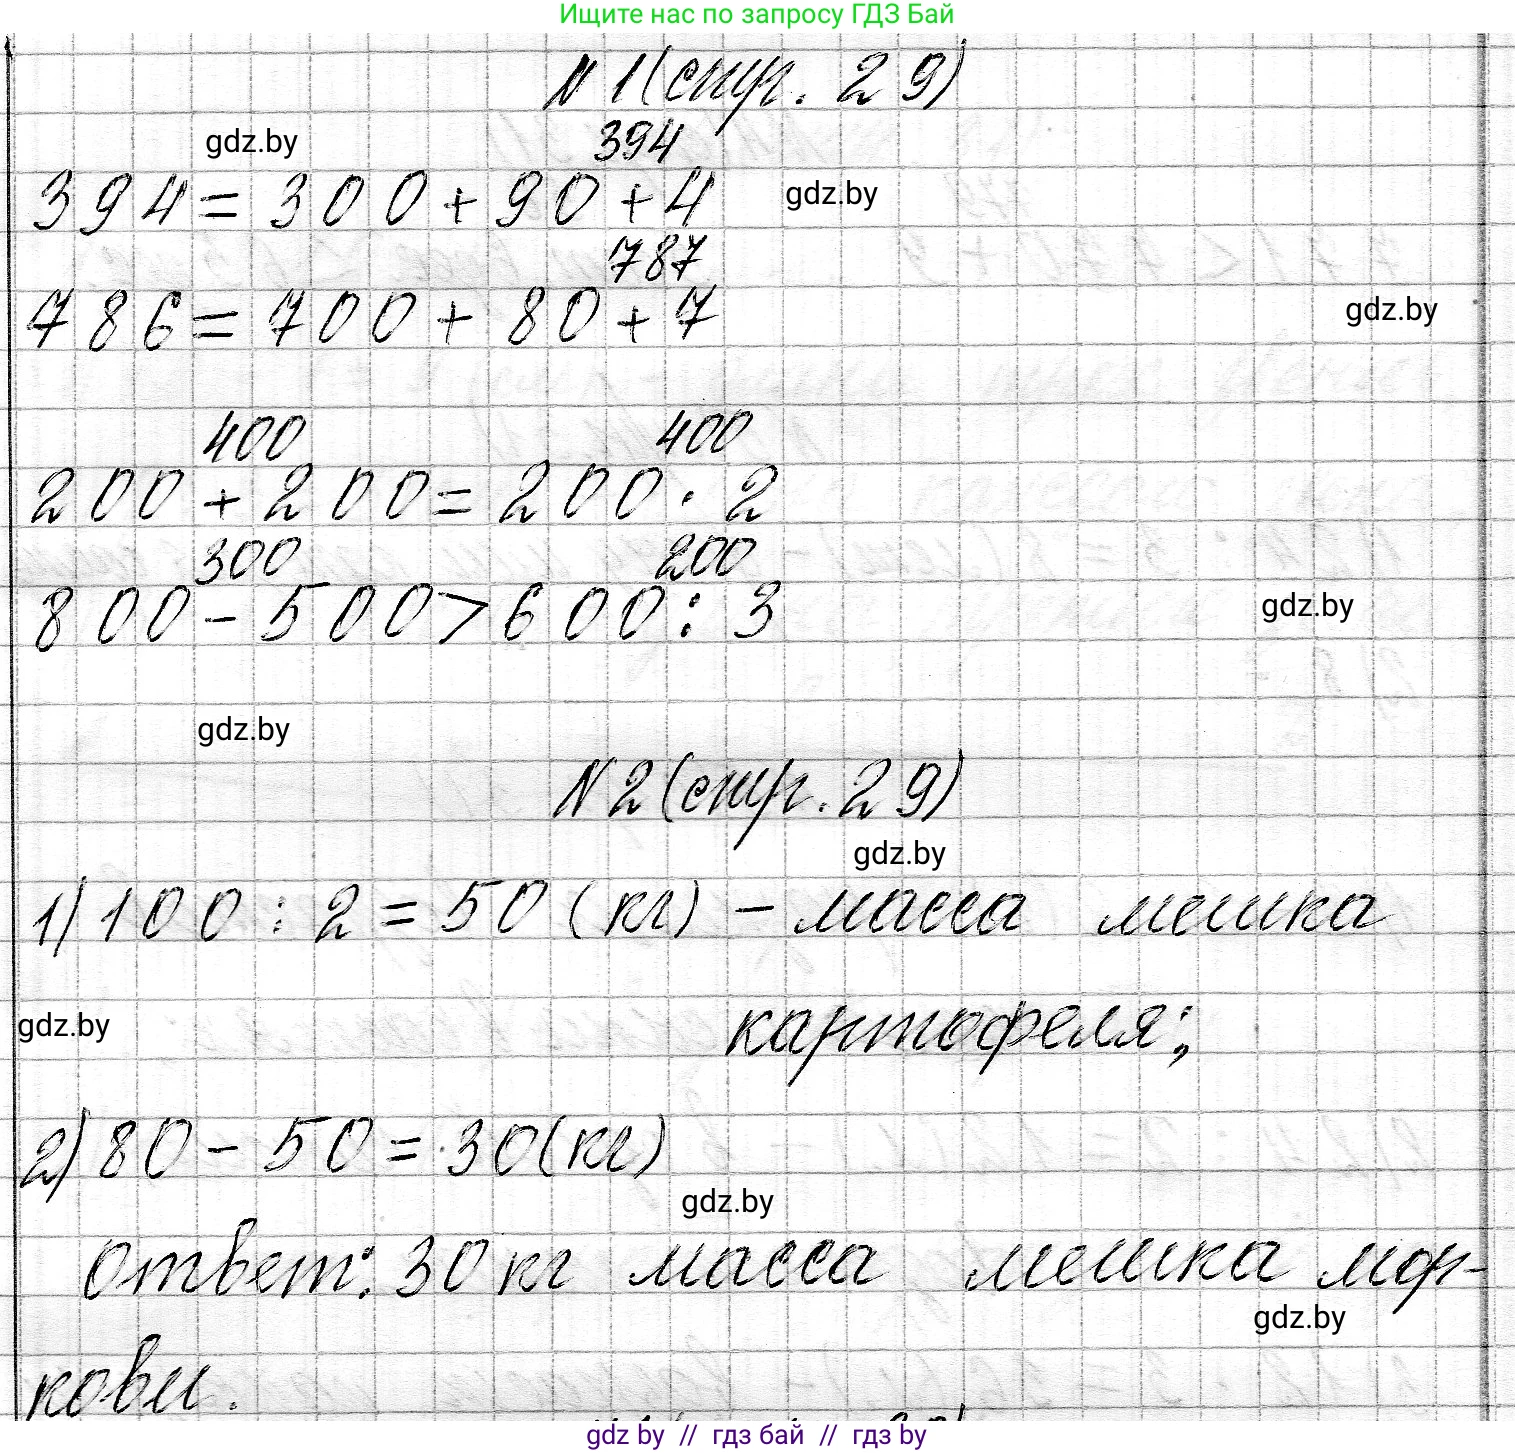 Ищите нас по запросу ГДЗ Бай
N 1 (стр. 29)
gdz.by
394
394 = 300 + 90 + 4
gdz.by
787
786 = 700 + 80 + 7
gdz.by
400 400
200 + 200 = 200 · 2
300 200
800 - 500 > 600 : 3
gdz.by
gdz.by
N 2 (стр. 29)
gdz.by
1) 100 : 2 = 50 (кг) - масса мешка
картофеля;
gdz.by
2) 80 - 50 = 30 (кг)
gdz.by
Ответ: 30 кг масса мешка мор-
gdz.by
кови.
gdz by // гдз бай // гдз by